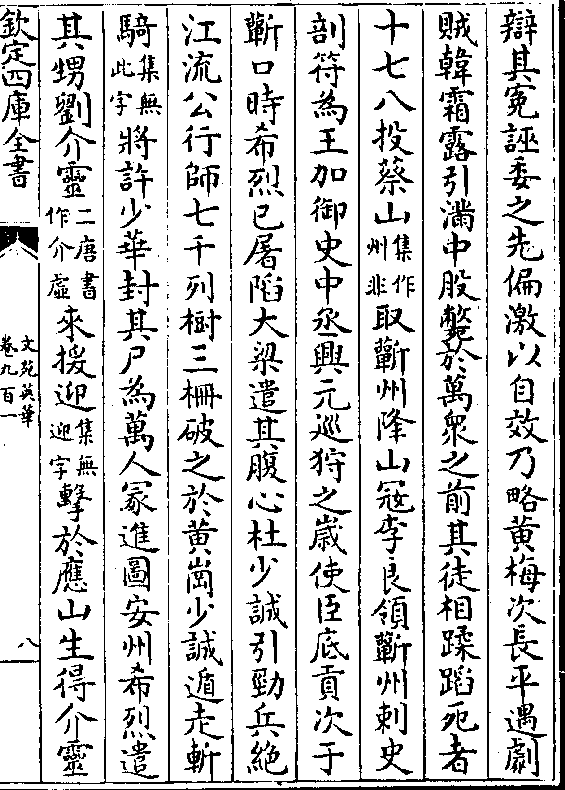 辯其寃誣委之先偏激以自效乃略黄梅次長平遇劇
賊韓霜露引滿中股斃於萬衆之前其徒相蹂蹈死者
十七八投蔡山集作州非取蘄州降山冦李良領蘄州刺史
剖符為王加御史中丞興元巡狩之歳使臣底貢次于
蘄口時希烈已屠䧟大梁遣其腹心杜少誠引勁兵絶
江流公行師七千列樹三柵破之於黄崗少誠遁走斬
騎集無此字將許少華封其尸為萬人冢進圖安州希烈遣
其甥劉介靈二唐書作介虚來援迎集無迎字擊於應山生得介靈
欽定四庫全書
文苑英華
卷九百一
八